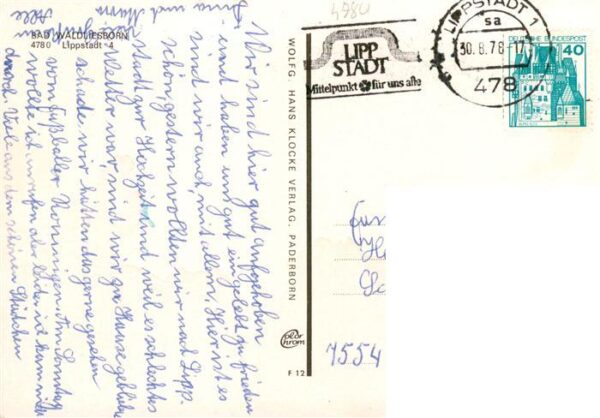 BAD WALDLIESBORN
4780 Lippstadt 4
Wir sind hier gut aufgehoben
und haben uns gut eingelebt zufrieden
sind wir auch mit allem. Hier ist es
schön gestern wollten wir nach Lipp-
stadt zur Hochzeit und weil es schlechtes
Wetter war sind wir zu Hause geblieben
schade wir hätten das gerne gesehen
vom Fußballer Am Sonntag
wollte ich anrufen aber leider ist kam nicht
durch. Viele aus dem schönen
Alle
Anna und
WOLFG. HANS KLOCKE VERLAG, PADERBORN
color chrom
F 12
4780
LIPP
STADT
Mittelpunkt für uns alle
LIPPSTADT 1
sa
30.8.78-17
478
DEUTSCHE BUNDESPOST
40
7554